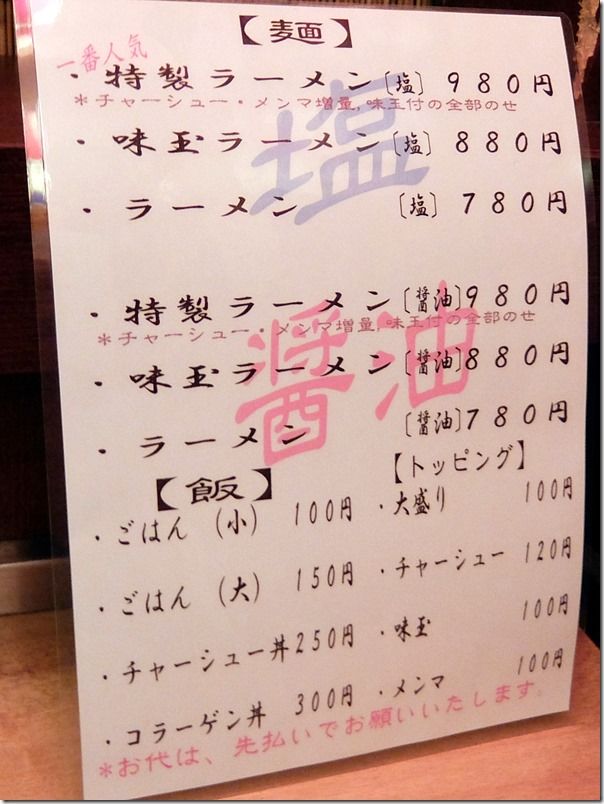 【麺】
一番人気
・特製ラーメン〔塩〕９８０円
＊チャーシュー・メンマ増量,味玉付の全部のせ
・味玉ラーメン〔塩〕８８０円
・ラーメン〔塩〕７８０円
塩
・特製ラーメン〔醤油〕９８０円
＊チャーシュー・メンマ増量,味玉付の全部のせ
・味玉ラーメン〔醤油〕８８０円
・ラーメン〔醤油〕７８０円
醤油
【飯】
・ごはん（小）１００円
・ごはん（大）１５０円
・チャーシュー丼２５０円
・コラーゲン丼３００円
【トッピング】
・大盛り１００円
・チャーシュー１２０円
・味玉１００円
・メンマ１００円
＊お代は、先払いでお願いいたします。